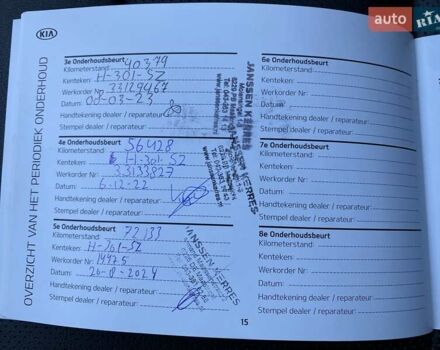 KIA
auto RIA
OVERZICHT VAN HET PERIODIEK ONDERHOUD
3e Onderhoudsbeurt
Kilometerstand: 40379
Kenteken: H-301-SZ
Werkorder Nr: 33129467
Datum: 00-03-23
Handtekening dealer / reparateur:
Stempel dealer / reparateur:
JANSSEN KERRES
4e Onderhoudsbeurt
Kilometerstand: 56428
Kenteken: H-301-SZ
Werkorder Nr: 33133827
Datum: 6-12-22
Handtekening dealer / reparateur:
Stempel dealer / reparateur:
JANSSEN KERRES
5e Onderhoudsbeurt
Kilometerstand: 72133
Kenteken: H-301-SZ
Werkorder Nr: 14475
Datum: 26-8-2024
Handtekening dealer / reparateur:
Stempel dealer / reparateur:
JANSSEN KERRES
6e Onderhoudsbeurt
Kilometerstand:
Kenteken:
Werkorder Nr:
Datum:
Handtekening dealer / reparateur:
Stempel dealer / reparateur:
7e Onderhoudsbeurt
Kilometerstand:
Kenteken:
Werkorder Nr:
Datum:
Handtekening dealer / reparateur:
Stempel dealer / reparateur:
8e Onderhoudsbeurt
Kilometerstand:
Kenteken:
Werkorder Nr:
Datum:
Handtekening dealer / reparateur:
Stempel dealer / reparateur:
15